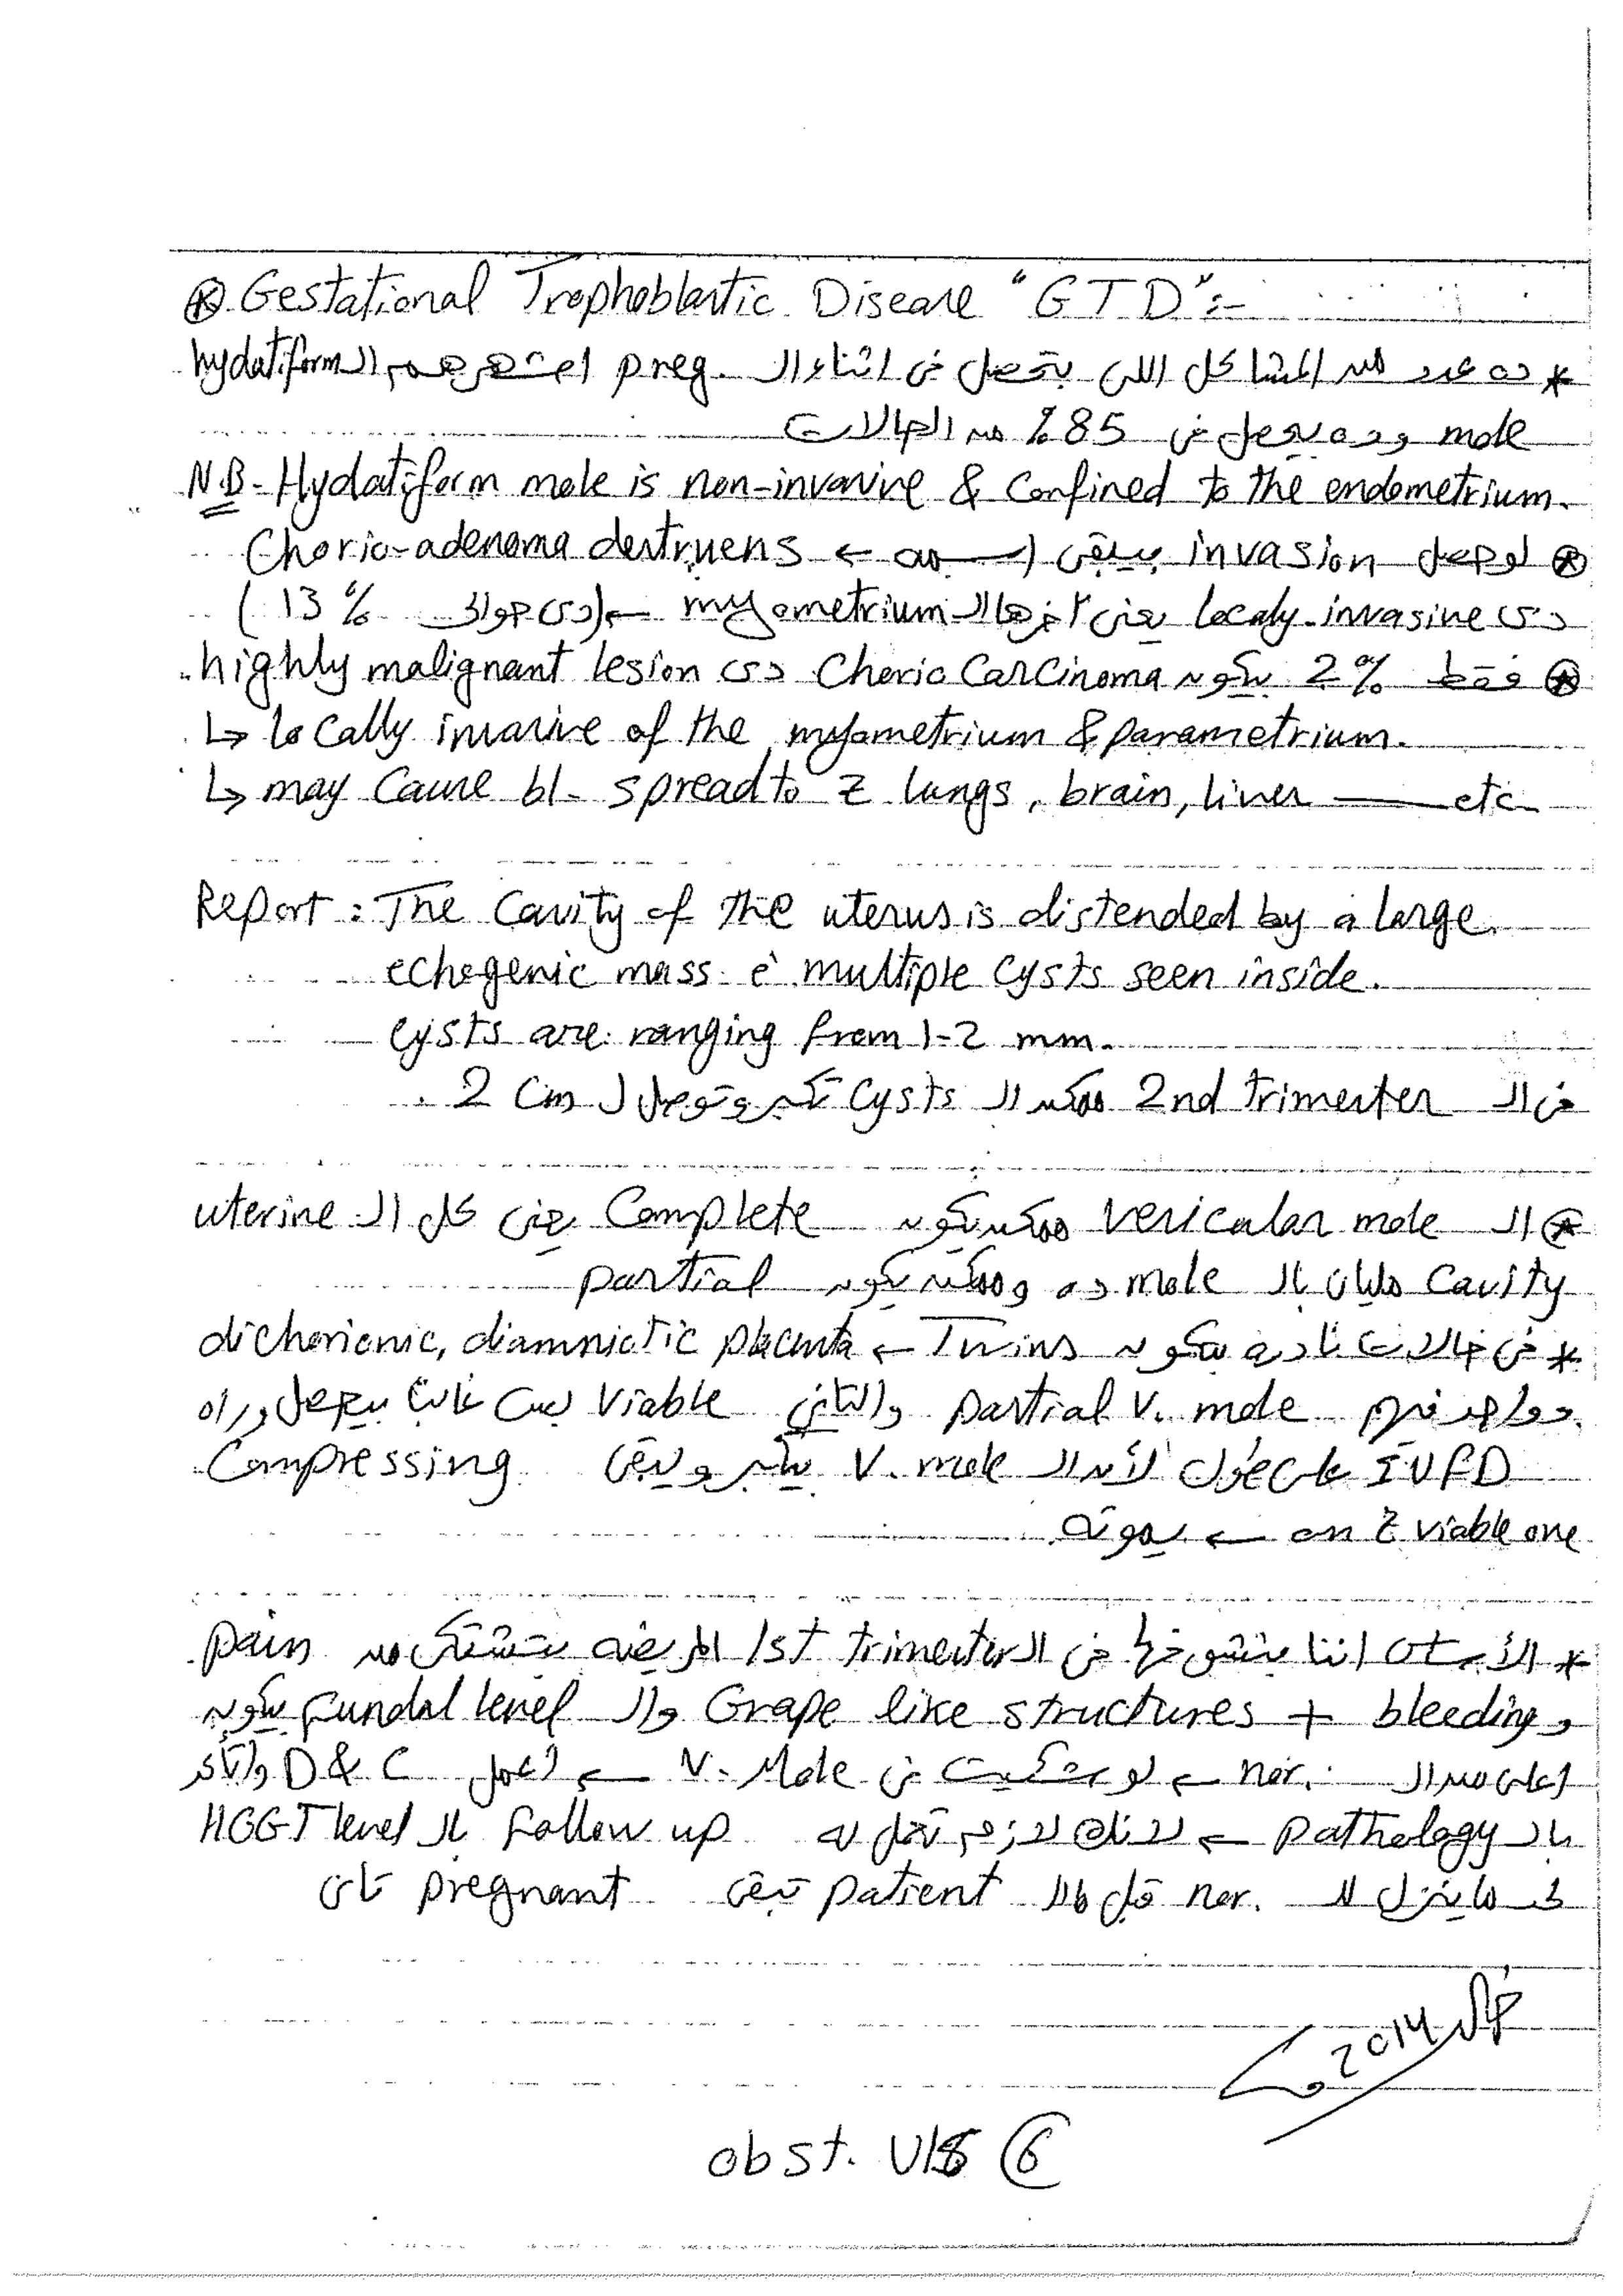 ⊛ Gestational Trophoblastic Disease "GTD":-
* ده عدد من المشاكل اللى بتحصل فى اثناء الـ preg. اشهرهم الـ hydatiform
mole وده بيحصل فى 85% من الحالات
N.B- Hydatiform mole is non-invasive & Confined to the endometrium.
⊛ لو حصل invasion يبقى اسمه ← Chorio-adenoma destruens
دى localy invasive يعنى اخرها الـ myometrium ← (دى حوالى 13%)
⊛ فقط 2% بيكون Chorio Carcinoma دى highly malignant lesion
↳ locally invasive of the myometrium & parametrium.
↳ may Cause bl. spread to z lungs, brain, liver —— etc
Report: The Cavity of the uterus is distended by a large
echogenic mass è multiple Cysts seen inside.
Cysts are ranging from 1-2 mm.
فى الـ 2nd trimester ممكن الـ Cysts تكبر وتوصل لـ 2 Cm.
⊛ الـ vesicular mole ممكن يكون Complete يعنى كل الـ uterine
Cavity مليان بالـ mole ده وممكن يكون partial
* فى حالات نادره بيكون Twins ← dichorionic, diamniotic placenta
وواحد فيهم partial v. mole والتانى viable بس غالباً بيحصل وراه
IUFD على طول لأن الـ v. mole بيكبر ويبقى Compressing
on z viable one ← يموته
* الأسـت اننا بنشوفها فى الـ 1st trimester المريضه بتشتكى من pain
و bleeding + Grape like structures والـ fundal level بيكون
اعلى من الـ nor. ← لو شكيت فى V. Mole ← اعمل D & C واتأكد
بالـ pathology ← لازم تعمل له follow up بالـ HCGT level
لحد ما ينزل للـ nor. قبل ما الـ patient تبقى pregnant تانى
2014
obst. U/S ⑥